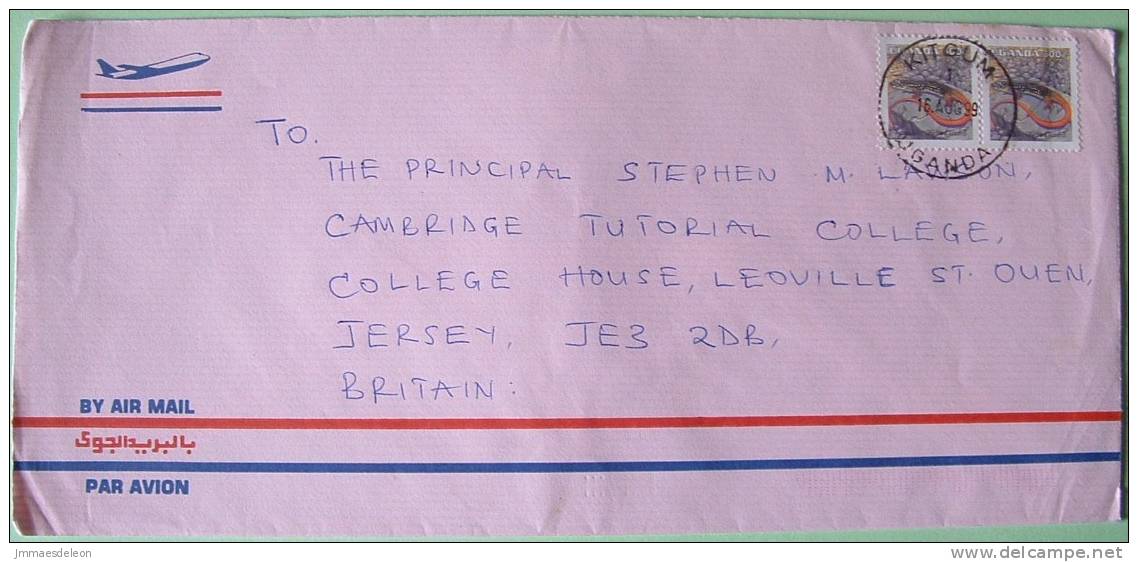 KITGUM
1
16.AUG 99
UGANDA
UGANDA
TO.
THE PRINCIPAL STEPHEN M.
CAMBRIDGE TUTORIAL COLLEGE,
COLLEGE HOUSE, LEOVILLE ST. OUEN,
JERSEY, JE3 2DB,
BRITAIN:
BY AIR MAIL
بالبريد الجوى
PAR AVION
Jmmaesdeleon
www.delcampe.net